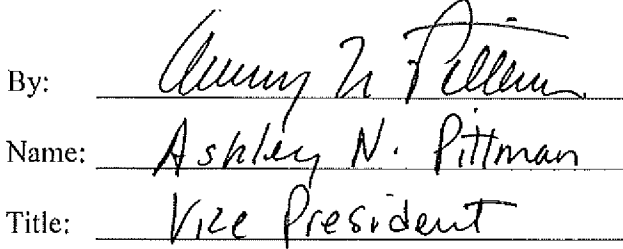 By: N Pittman
Name: Ashley N. Pittman
Title: Vice President